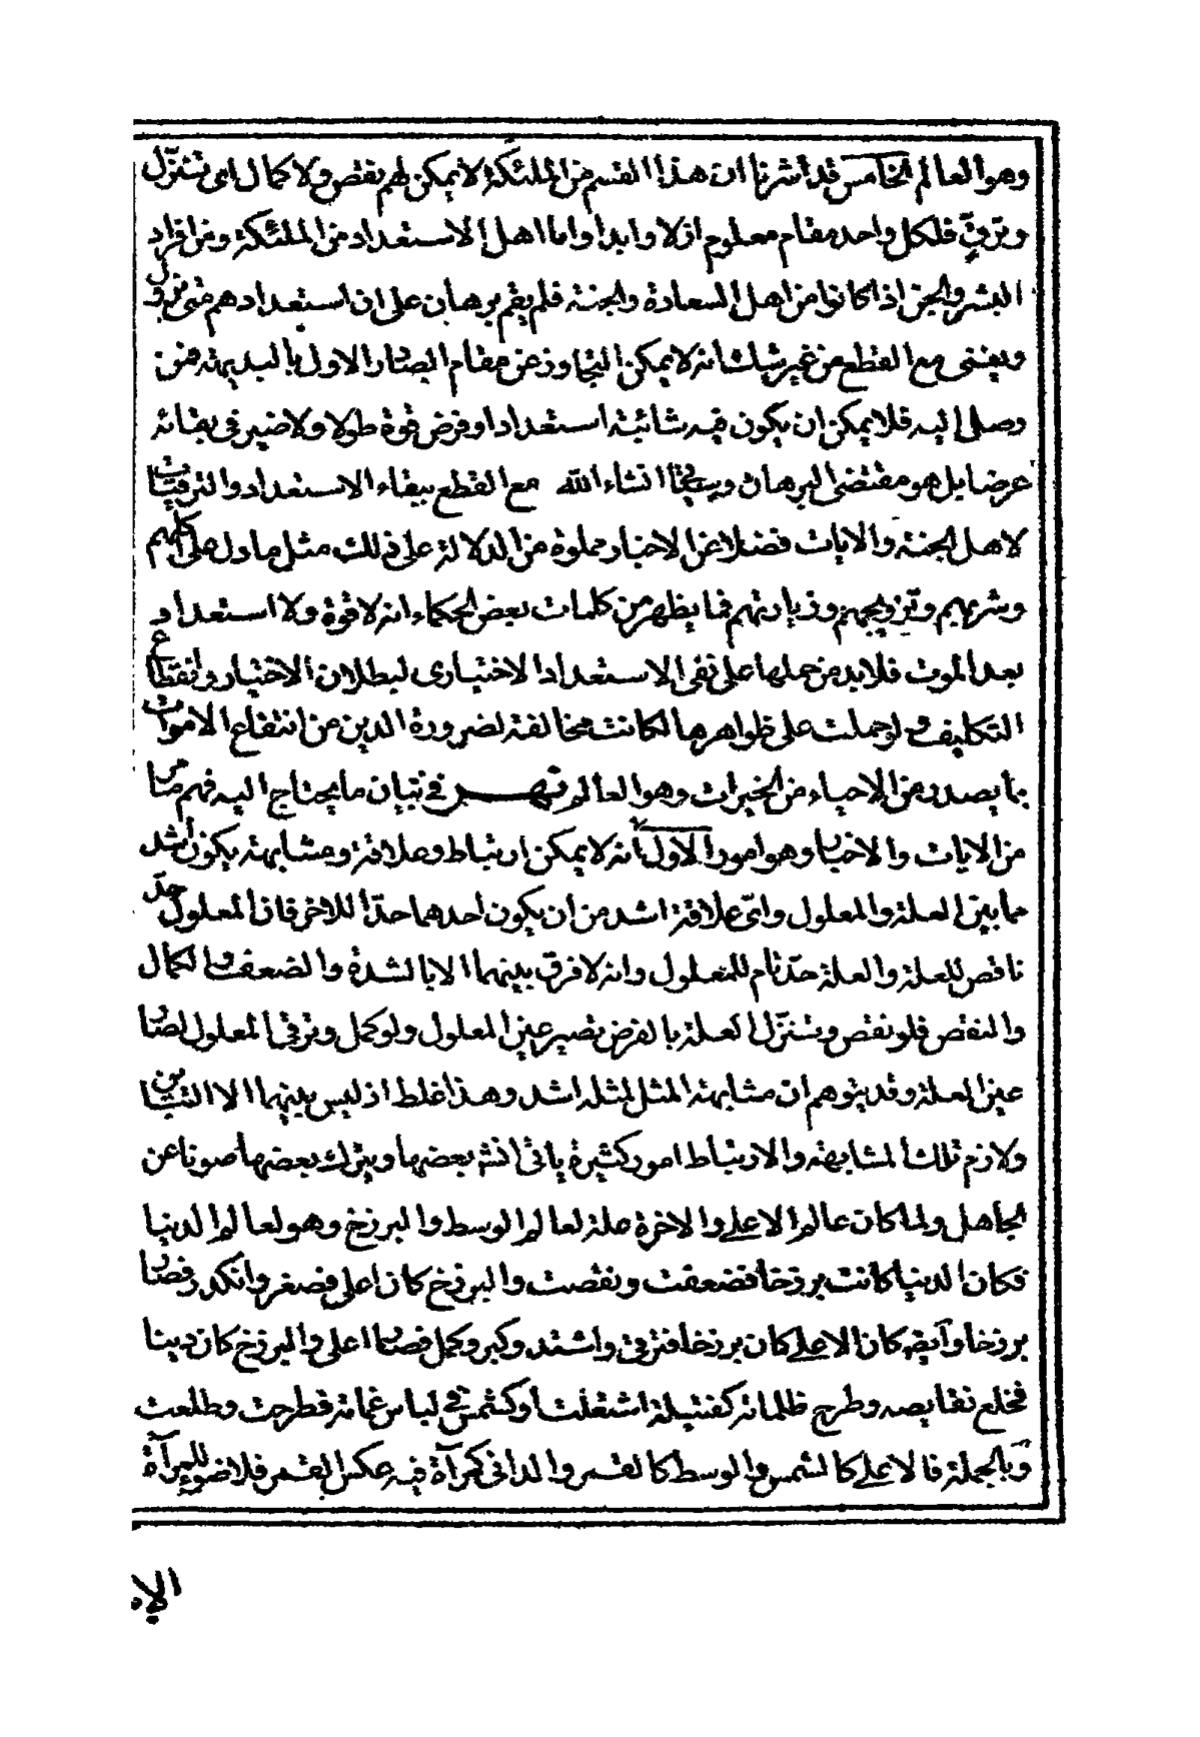 وهو العالم الخامس قد اشرنا ان هذا القسم من الملئكة لا يمكن لهم نقص ولا كمال اى تنزّل
وترقٍّ فلكل واحد مقام معلوم ازلا وابدا واما اهل الاستعداد من الملئكة ومن افراد
البشر والجن اذا كانوا من اهل السعادة والجنة فلم يقم برهان على ان استعدادهم متى يزول
ويفنى مع القطع من غير شك انه لا يمكن التجاوز عن مقام الصادر الاول بالبديهة فمن
وصل اليه فلا يمكن ان يكون فيه شائبة استعداد او فرض قوة طولا ولا ضير فى بقائه
عرضا بل هو مقتضى البرهان وسيجئ انشاء الله مع القطع ببقاء الاستعداد والترقيات
لاهل الجنة والايات فضلا عن الاخبار مملوة من الدلالة على ذلك مثل ما دل على اكلهم
وشربهم وتزويجهم وزيارتهم فما يظهر من كلمات بعض الحكماء انه لا قوة ولا استعداد
بعد الموت فلابد من حملها على نفى الاستعداد الاختيارى لبطلان الاختيار وانقطاع
التكليف ولو حملت على ظواهرها لكانت مخالفة لضرورة الدين من انتفاع الاموات
بما يصدر من الاحياء من الخيرات وهو العالم فى تبيان ما يحتاج اليه فهم ما مر
من الايات والاخبار وهو امور الاول انه لا يمكن ارتباط وعلاقة ومشابهة يكون اشد
مما بين العلة والمعلول واىّ علاقة اشد من ان يكون احدهما حدّا للاخر فان المعلول حدّ
ناقص للعلة والعلة حدّ تام للمعلول وانه لا فرق بينهما الا بالشدة والضعف والكمال
والنقص فلو نقص وتنزّل العلة بالفرض تصير عين المعلول ولو كمل وترقى المعلول لصار
عين العلة وقد يتوهم ان مشابهة المثل لمثله اشد وهذا غلط اذ ليس بينهما الا التباين
ولازم تلك المشابهة والارتباط امور كثيرة ياتى انشر بعضها ويترك بعضها صونا عن
الجاهل ولما كان عالم الاعلى والاخرة علة لعالم الوسط والبرزخ وهو لعالم الدنيا
فكان الدنيا كانت برزخا فضعفت ونقصت والبرزخ كان اعلى فصغر وانكدر فصار
برزخا وايضه كان الاعلى كان برزخا فترقى واشتد وكبر وكمل فصار اعلى والبرزخ كان دينا
فخلع نقايصه وطرح ظلماته كفتيلة اشتعلت او كشمس فى لباس غمامة فطرحت وطلعت
وبالجملة فالاعلى كالشمس والوسط كالقمر والدانى كمرآة فيه عكس القمر فلا ضوء للمرآة
الا